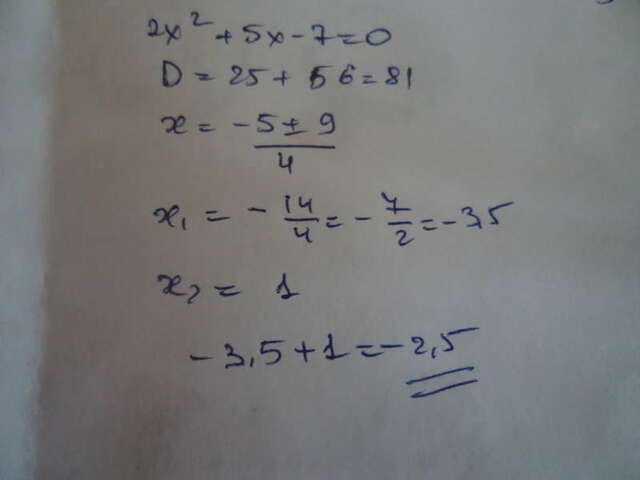 2x² + 5x - 7 = 0
D = 25 + 56 = 81
x = (-5 ± 9)/4
x₁ = - 14/4 = - 7/2 = -3,5
x₂ = 1
-3,5 + 1 = -2,5